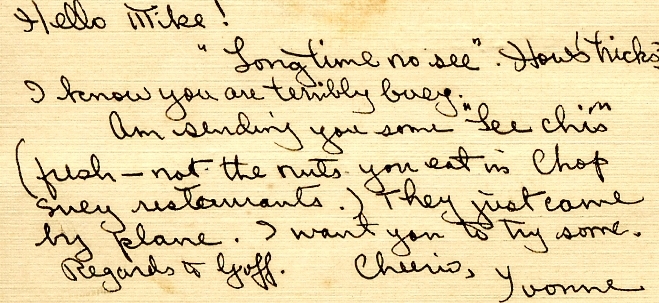 Hello Mike!
"Long time no see". How's tricks?
I know you are terribly busy.
Am sending you some "Lee chis"
(fresh — not the nuts you eat in Chop
Suey restaurants.) They just came
by plane. I want you to try some.
Regards to Goff. Cheerio,
Yvonne